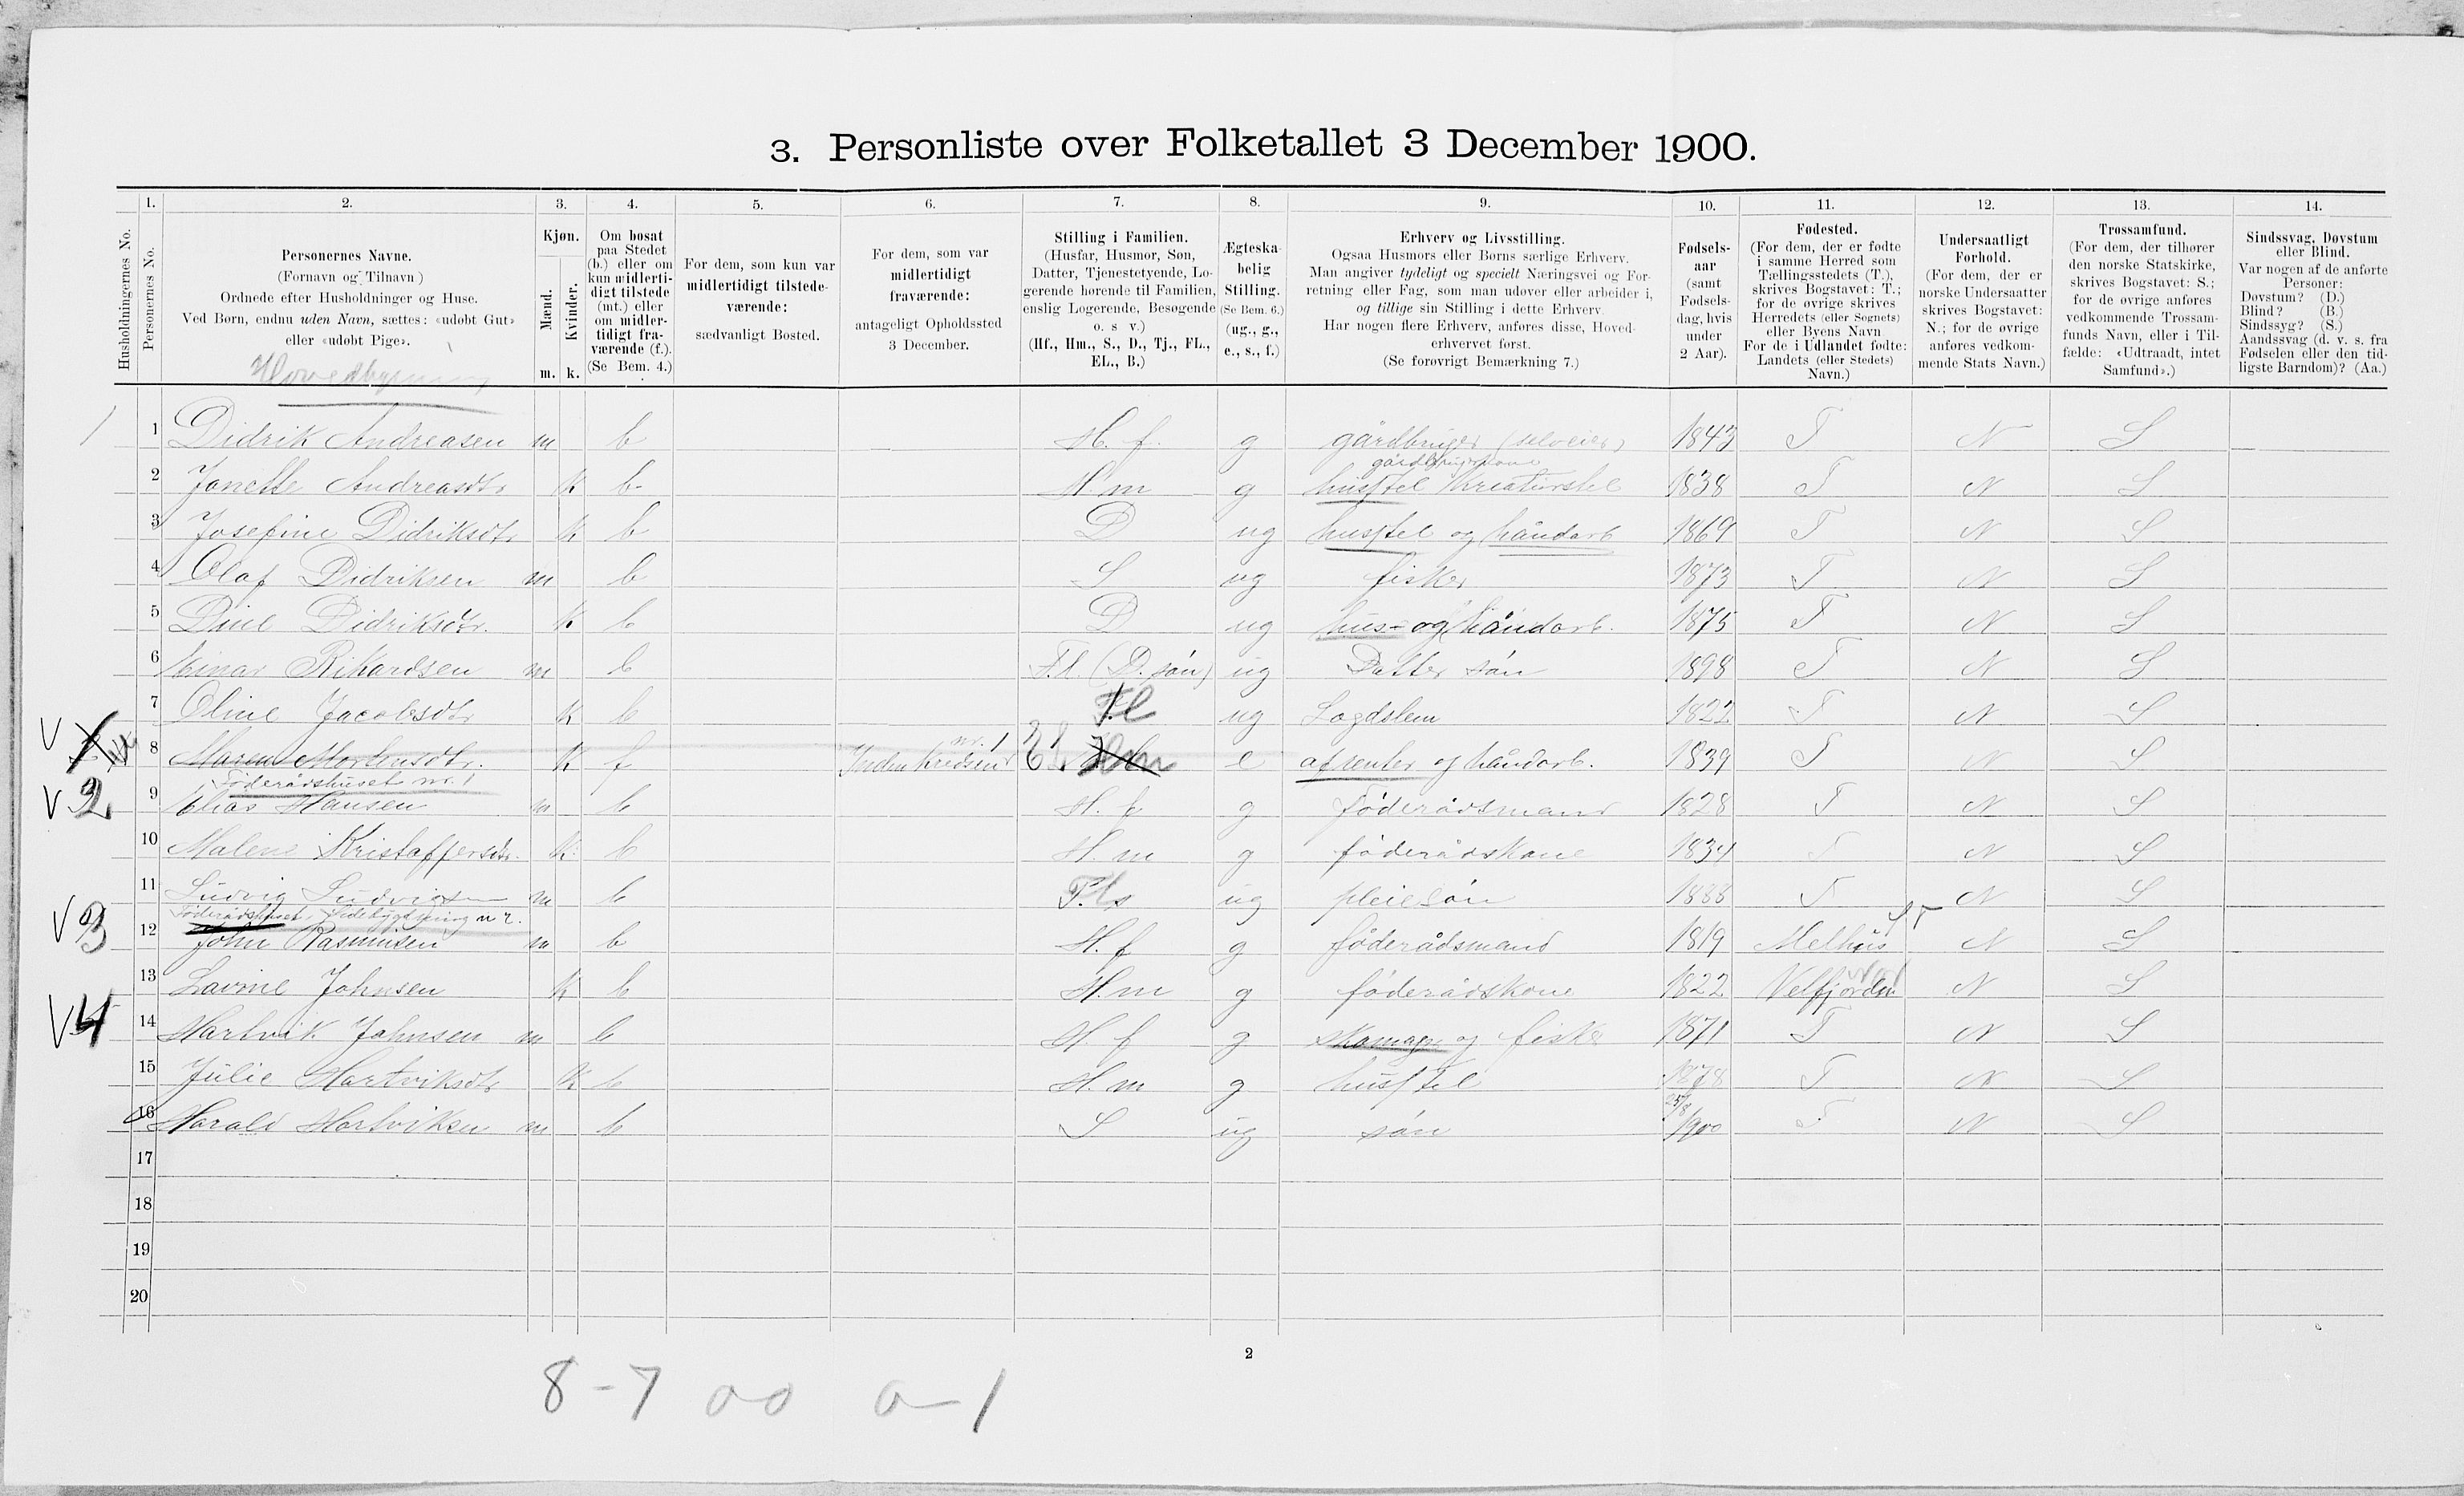 3. Personliste over Folketallet 3 December 1900.
1. 2. 3. 4. 5. 6. 7. 8. 9. 10. 11. 12. 13. 14.
Husholdningernes No.
Personernes No.
Personernes Navne.
(Fornavn og Tilnavn)
Ordnede efter Husholdninger og Huse.
Ved Børn, endnu uden Navn, sættes: «udøbt Gut»
eller «udøbt Pige».
Kjøn.
Mænd.
Kvinder.
m. k.
Om bosat
paa Stedet
(b.) eller om
kun midlerti-
digt tilstede
(mt.) eller
om midler-
tidigt fra-
værende (f.).
(Se Bem. 4.)
For dem, som kun var
midlertidigt tilstede-
værende:
sædvanligt Bosted.
For dem, som var
midlertidigt
fraværende:
antageligt Opholdssted
3 December.
Stilling i Familien.
(Husfar, Husmor, Søn,
Datter, Tjenestetyende, Lo-
gerende hørende til Familien,
enslig Logerende, Besøgende
o. s v.)
(Hf., Hm., S., D., Tj., FL.,
EL., B.)
Ægteska-
belig
Stilling.
(Se Bem. 6.)
(ug., g.,
e., s., f.)
Erhverv og Livsstilling.
Ogsaa Husmors eller Børns særlige Erhverv.
Man angiver tydeligt og specielt Næringsvei og For-
retning eller Fag, som man udøver eller arbeider i,
og tillige sin Stilling i dette Erhverv.
Har nogen flere Erhverv, anføres disse, Hoved-
erhvervet først.
(Se forøvrigt Bemærkning 7.)
Fødsels-
aar
(samt
Fødsels-
dag, hvis
under
2 Aar).
Fødested.
(For dem, der er fødte
i samme Herred som
Tællingsstedets (T.),
skrives Bogstavet: T.;
for de øvrige skrives
Herredets (eller Sognets)
eller Byens Navn
For de i Udlandet fødte:
Landets (eller Stedets)
Navn.)
Undersaatligt
Forhold.
(For dem, der er
norske Undersaatter
skrives Bogstavet:
N.; for de øvrige
anføres vedkom-
mende Stats Navn.)
Trossamfund.
(For dem, der tilhører
den norske Statskirke,
skrives Bogstavet: S.;
for de øvrige anføres
vedkommende Trossam-
funds Navn, eller i Til-
fælde: «Udtraadt, intet
Samfund».)
Sindssvag, Døvstum
eller Blind.
Var nogen af de anførte
Personer:
Døvstum? (D.)
Blind? (B.)
Sindssyg? (S.)
Aandssvag (d. v. s. fra
Fødselen eller den tid-
ligste Barndom)? (Aa.)
Hovedbygning
1 1 Didrik Andreasen m b H. f. g gårdbruger (selveier) 1843 T N S
gårdbrugerkone
2 Janette Andreasdtr K b H.m g husstel Kreaturstel 1838 T N S
3 Josefine Didriksdtr K b D ug husstel og håndarb 1869 T N S
4 Olaf Didriksen m b S ug fisker 1873 T N S
5 Dine Didriksdtr. K b D ug hus- og håndarb. 1875 T N S
6 Einar Rikardsen m b F.l. (D. søn) ug Datter søn 1898 T N S
7 Oline Jacobsdtr K b Fl ug Lægdslem 1822 T N S
V 8 Maren Mortensdtr. K f Inden kredsen nr. 1 El e og håndarb. 1839 T N S
Föderådshuset nr. 1
V 2 9 Elias Hansen m b H. f g föderådsmand 1828 T N S
10 Malene Kristoffersdtr. K b H. m g föderådskone 1834 T N S
11 Ludvig Ludvigsen m b ug pleiesön 1888 T N S
Föderådshuset, Sidebygdning nr 2.
V 3 12 John Rasmusen m b H. f g föderådsmand 1819 Melhus N S
13 Lavine Johnsen K b H.m g föderådskone 1822 Velfjorden N S
V 4 14 Hartvik Johnsen m b H f g skomager og fisker 1871 T N S
15 Julie Hartviksdtr K b H. m g husstel 1878 T N S
16 Harald Hartviksen m b S ug sön 25/8 1900 T N S
17
18
19
20
2
8 - 7 00 0 - 1